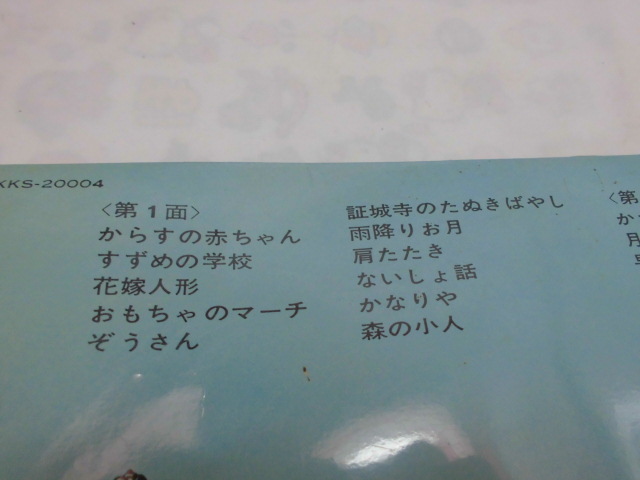 KKS-20004
〈第1面〉
からすの赤ちゃん
すずめの学校
花嫁人形
おもちゃのマーチ
ぞうさん
証城寺のたぬきばやし
雨降りお月
肩たたき
ないしょ話
かなりや
森の小人
〈第
か
月